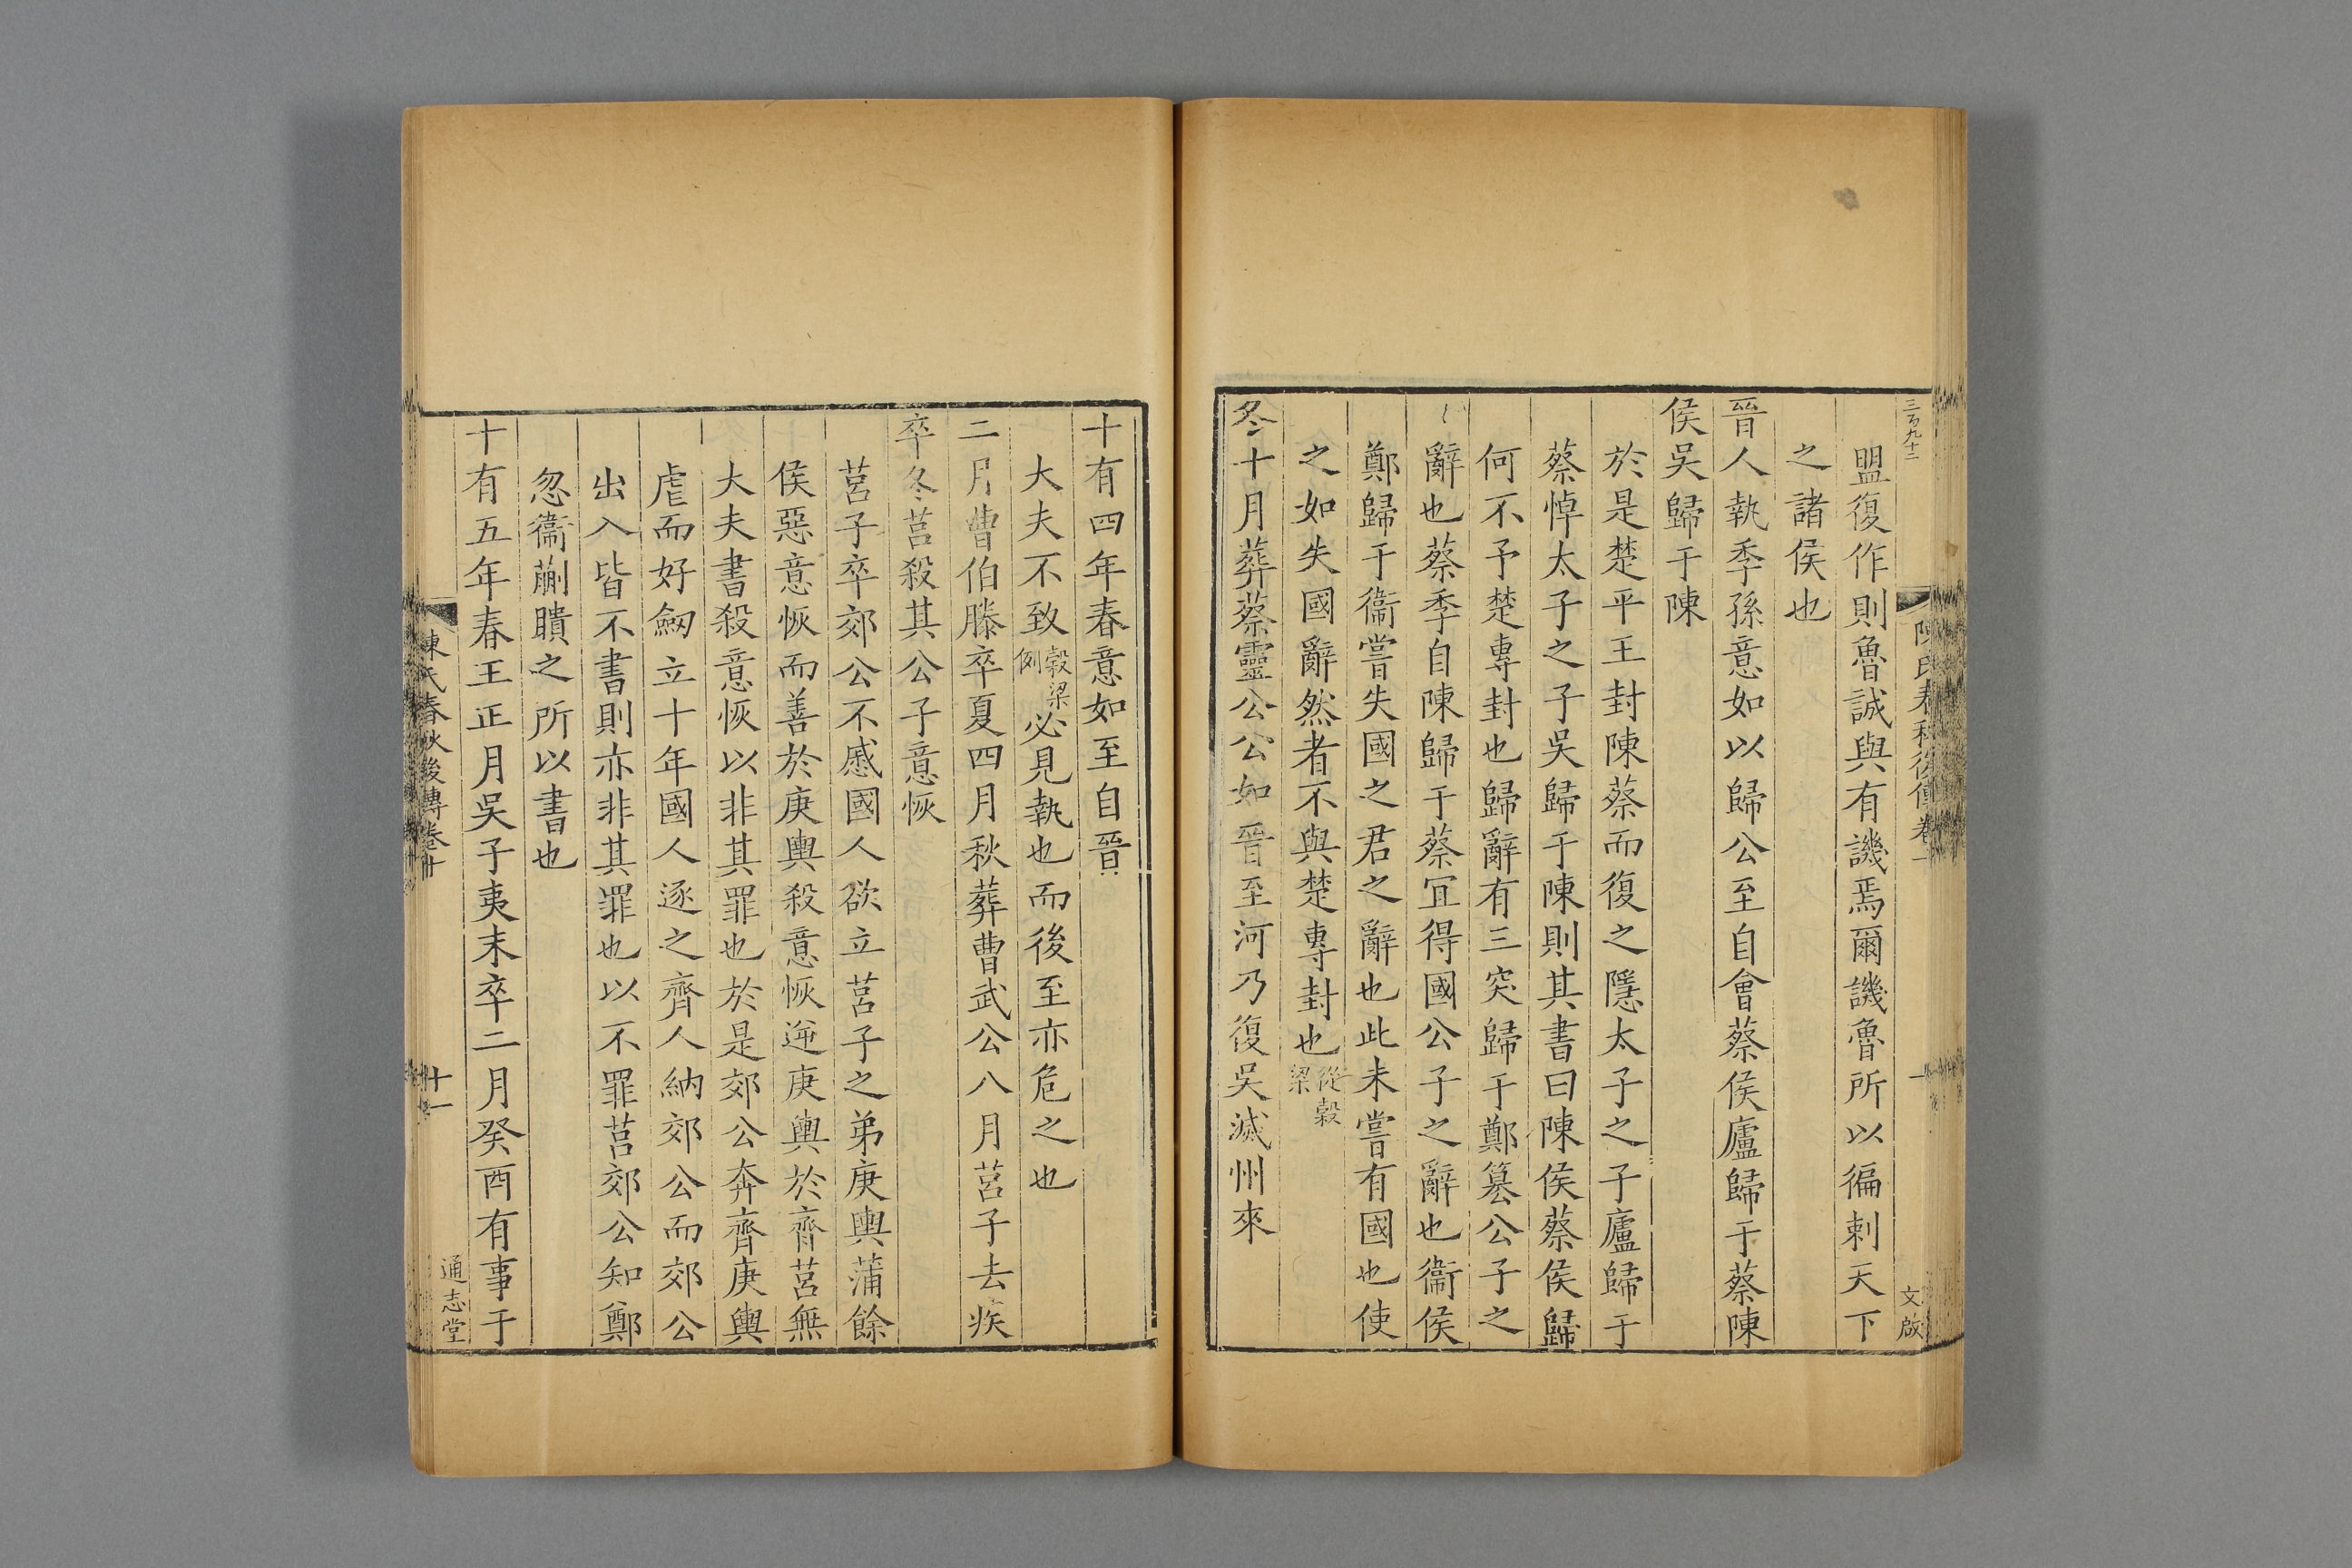 三百九十二
陳氏春秋後傳卷
文啟
盟復作則魯誠與有譏焉爾譏魯所以徧刺天下
之諸侯也
晉人執季孫意如以歸公至自會蔡侯廬歸于蔡陳
侯吳歸于陳
於是楚平王封陳蔡而復之隱太子之子廬歸于
蔡悼太子之子吳歸于陳則其書曰陳侯蔡侯歸
何不予楚專封也歸辭有三突歸于鄭篡公子之
辭也蔡季自陳歸于蔡宜得國公子之辭也衞侯
鄭歸于衞嘗失國之君之辭也此未嘗有國也使
之如失國辭然者不與楚專封也從穀梁
冬十月葬蔡靈公公如晉至河乃復吳滅州來
十有四年春意如至自晉
大夫不致穀梁例必見執也而後至亦危之也
二月曹伯滕卒夏四月秋葬曹武公八月莒子去疾
卒冬莒殺其公子意恢
莒子卒郊公不慼國人欲立莒子之弟庚輿蒲餘
侯惡意恢而善於庚輿殺意恢逆庚輿於齊莒無
大夫書殺意恢以非其罪也於是郊公奔齊庚輿
虐而好劒立十年國人逐之齊人納郊公而郊公
出入皆不書則亦非其罪也以不罪莒郊公知鄭
忽衞蒯聵之所以書也
十有五年春王正月吳子夷末卒二月癸酉有事于
陳氏春秋後傳卷十
十一
通志堂